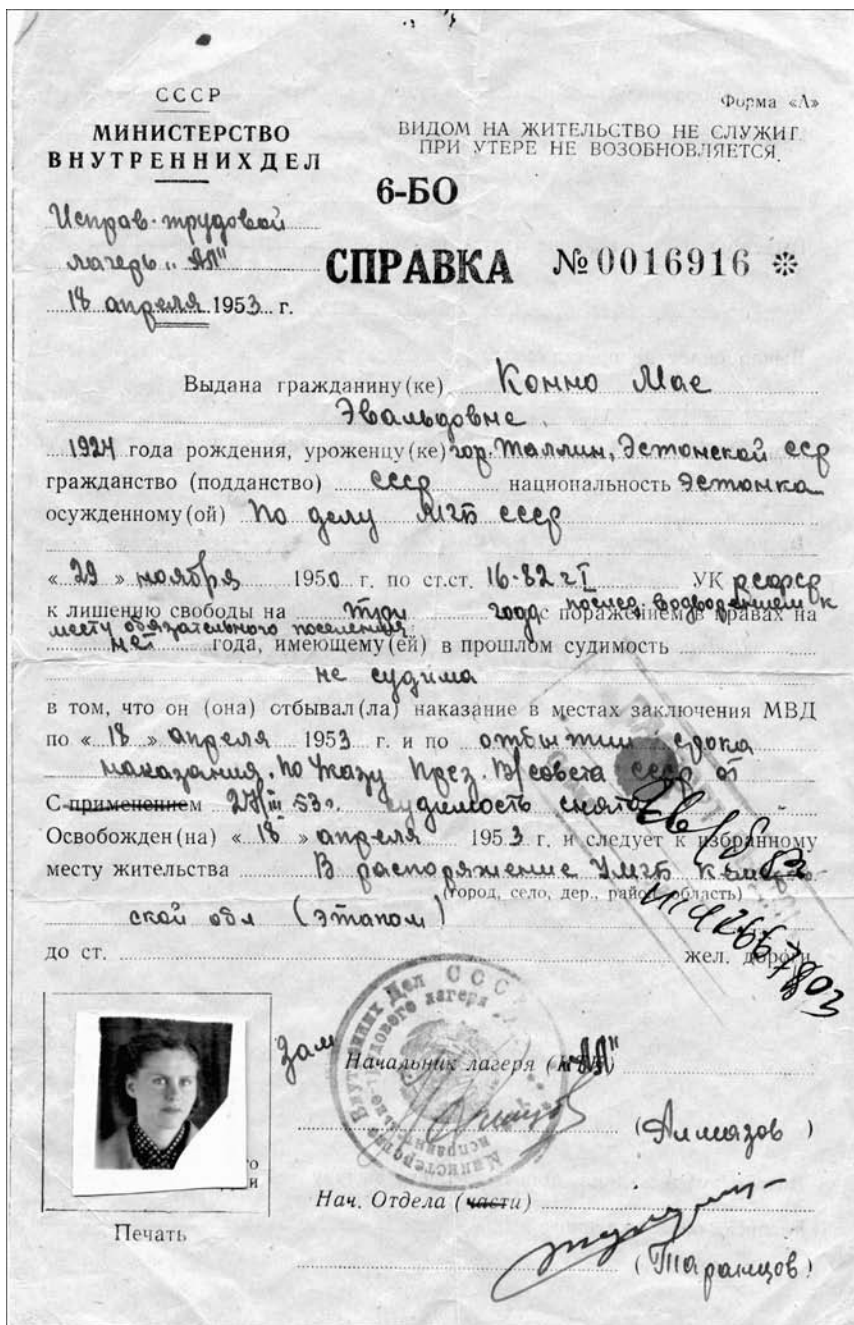 СССР
МИНИСТЕРСТВО
ВНУТРЕННИХ ДЕЛ
Исправ-трудовой
лагерь „АЛ"
18 апреля 1953 г.
Форма «А»
ВИДОМ НА ЖИТЕЛЬСТВО НЕ СЛУЖИТ.
ПРИ УТЕРЕ НЕ ВОЗОБНОВЛЯЕТСЯ.
6-БО
СПРАВКА №0016916
Выдана гражданину(ке) Конно Мае
Эвальдовне.
1924 года рождения, уроженцу(ке) гор. Таллин, Эстонской сср
гражданство (подданство) ссср национальность Эстонка
осужденному(ой) По делу МГБ ссср
« 29 » ноября 1950 г. по ст.ст. 16-82 ч I УК рсфср
к лишению свободы на три года с поражением в правах на
послед. водворением к
месту обязательного поселения
нет года, имеющему(ей) в прошлом судимость
не судима
в том, что он (она) отбывал(ла) наказание в местах заключения МВД
по « 18 » апреля 1953 г. и по отбытии срока
наказания. По Указу През. В/совета ссср от
С применением 27/III 53г. судимость снята
Освобожден(на) « 18 » апреля 1953 г. и следует к избранному
месту жительства В распоряжение УМГБ
(город, село, дер., район, область)
ской обл (этапом)
до ст. жел. дороги
Министерство Внутренних Дел СССР
Зам
Начальник лагеря „АЛ"
(Алмазов)
Нач. Отдела (части)
(Таранцов)
Печать